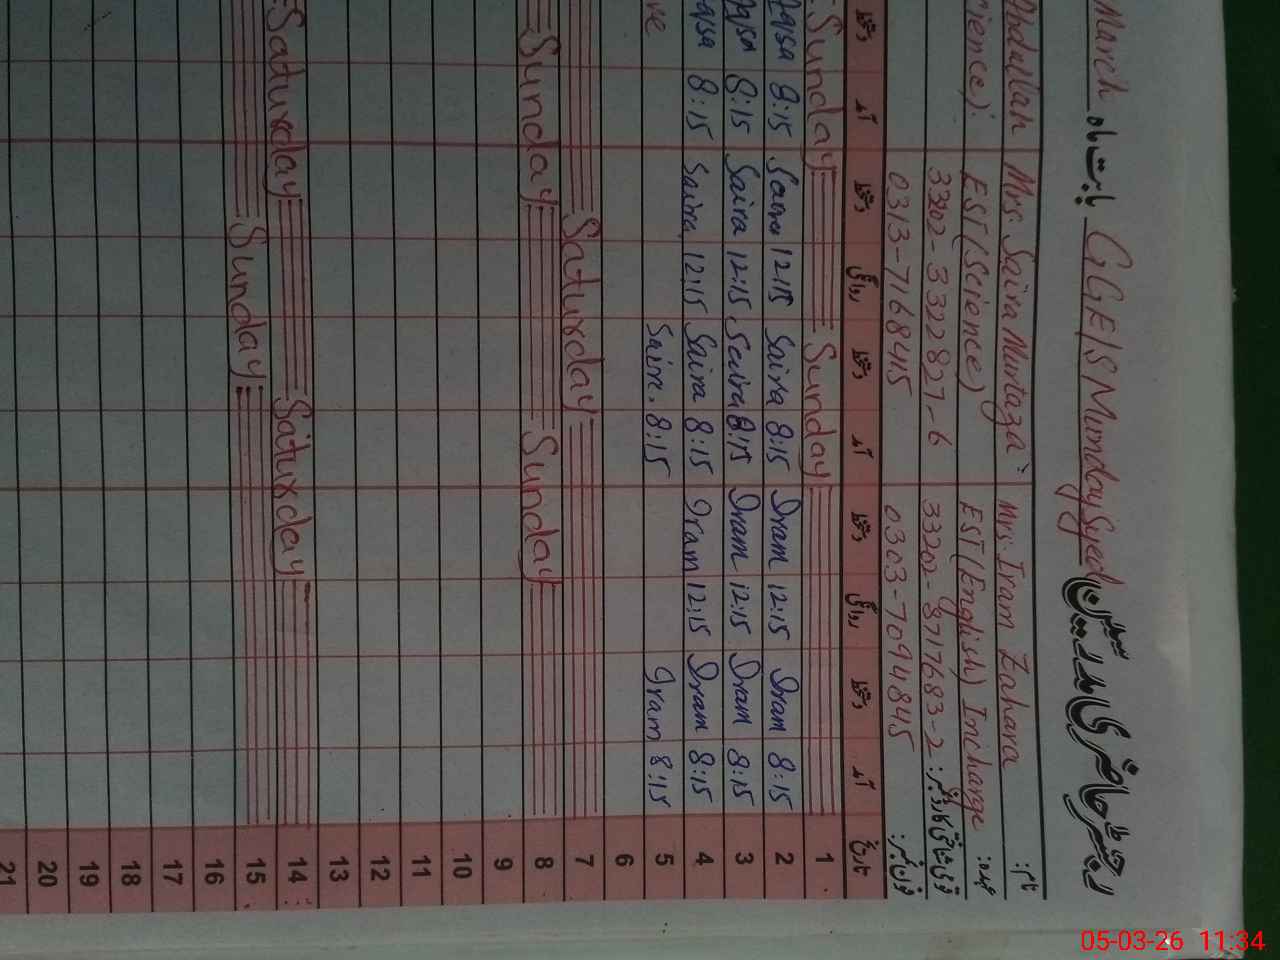 رجسٹر حاضری مدرسین GGE/S Munday Syed بابت ماہ March
Abdullah Mrs. Saira Murtaza Mrs. Iram Zahara نام:
cience). EST (Science) EST (English) Incharge عہدہ:
33202-3392827-6 33202-8717683-2 قومی شناختی کارڈ نمبر:
0313-7168415 0303-7094845 فون نمبر:
دستخط آمد دستخط روانگی دستخط آمد دستخط روانگی دستخط آمد تاریخ
Sunday Sunday 1
Aqsa 8:15 Saira 12:15 Saira 8:15 Iram 12:15 Iram 8:15 2
Aqsa 8:15 Saira 12:15 Saira 8:15 Iram 12:15 Iram 8:15 3
Aqsa 8:15 Saira 12:15 Saira 8:15 Iram 12:15 Iram 8:15 4
ve Saira. 8:15 Iram 8:15 5
6
Saturday 7
Sunday Sunday 8
9
10
11
12
13
Saturday Saturday 14
Sunday 15
16
17
18
19
20
21
05-03-26 11:34